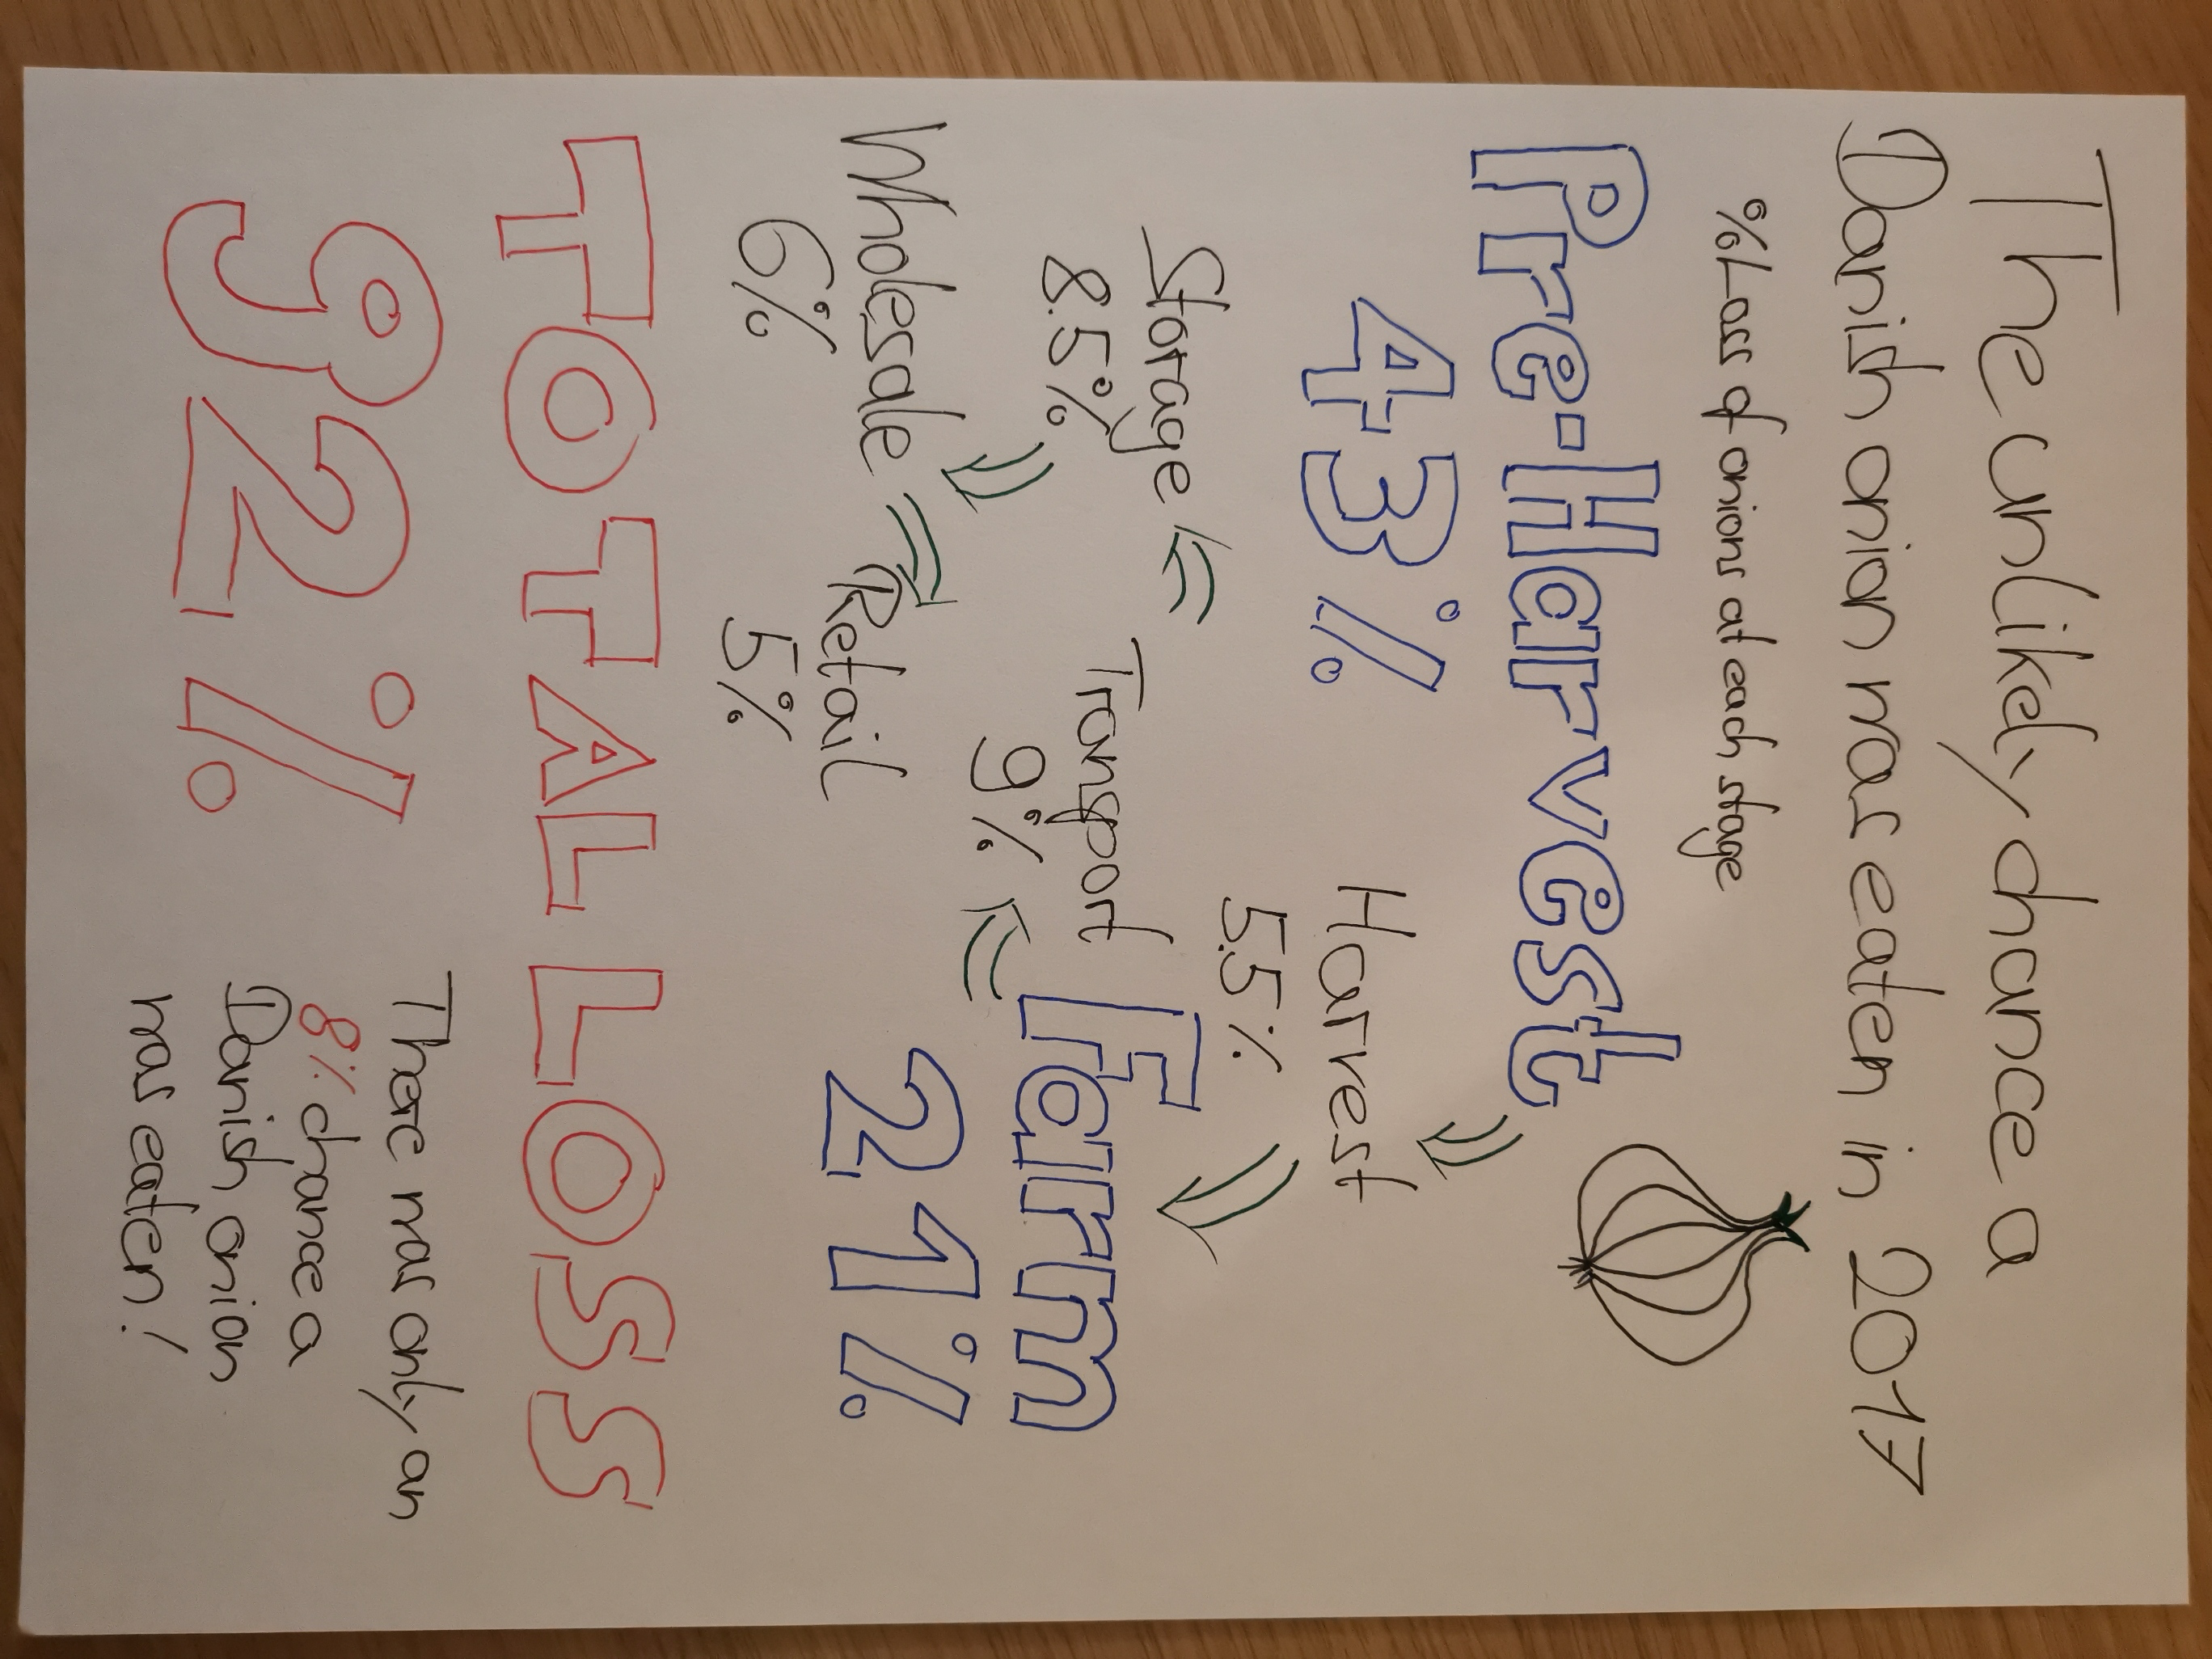 The unlikely chance a
Danish onion was eaten in 2017
% Loss of onions at each stage
Pre-Harvest
43%
Harvest
5.5%
Farm
21%
Transport
9%
Storage
8.5%
Wholesale
6%
Retail
5%
TOTAL LOSS
92%
There was only an
8% chance a
Danish onion
was eaten!